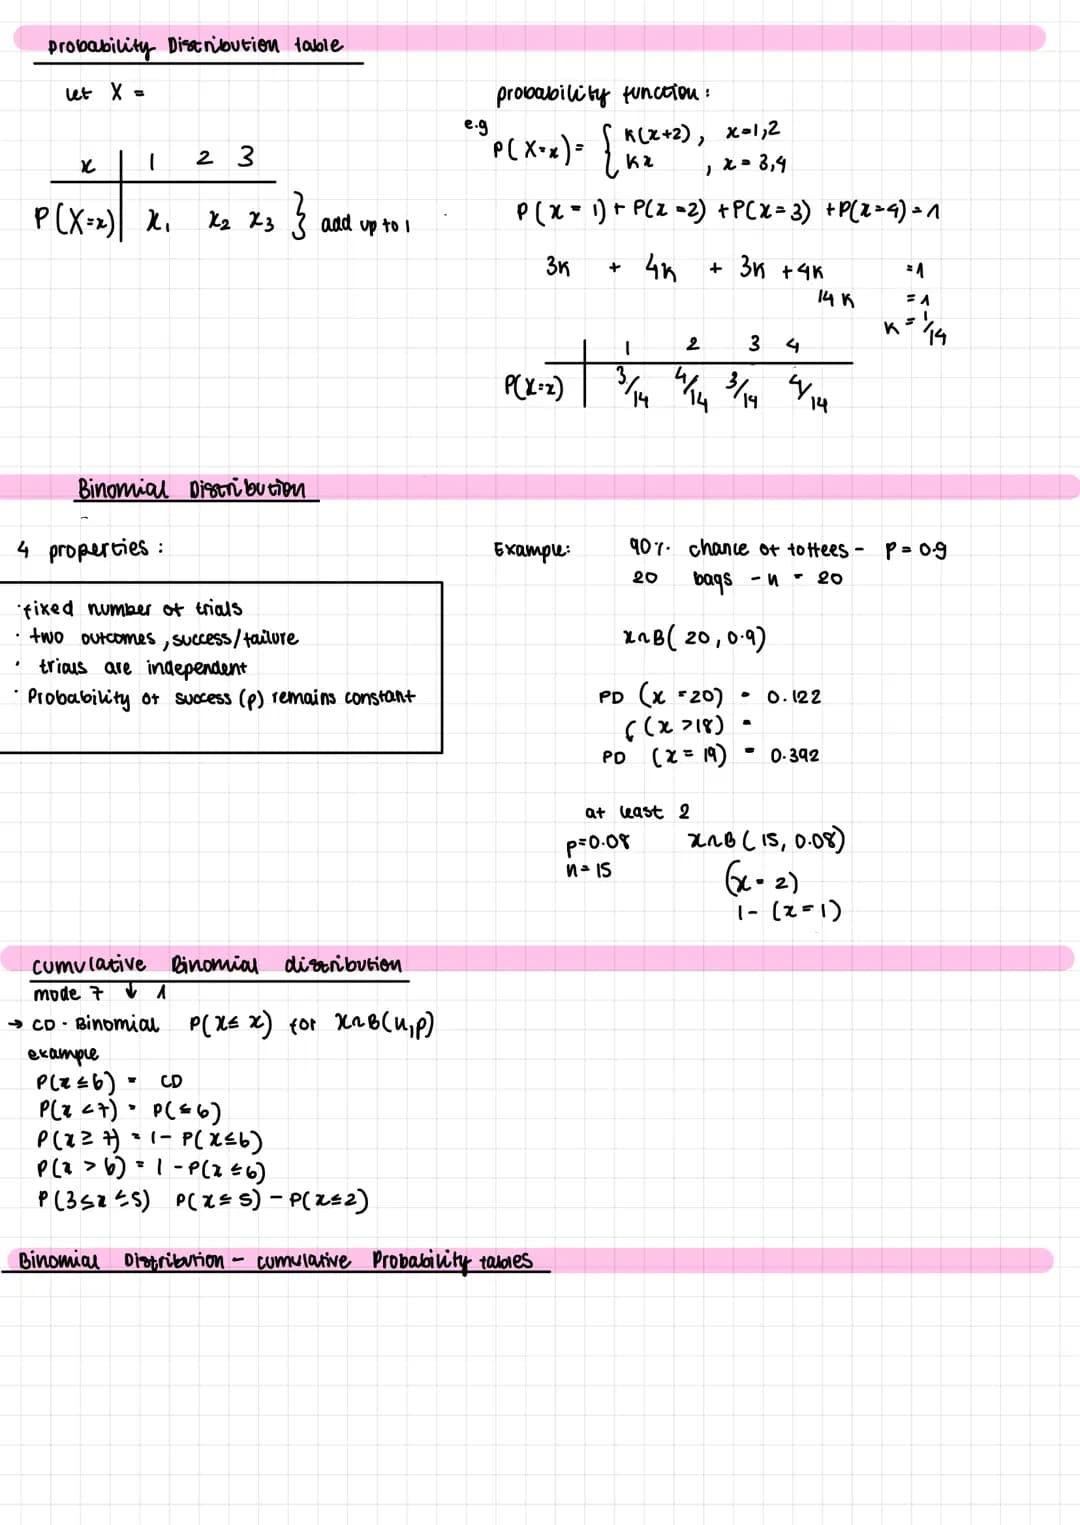 probability Distribution table
let X =
x 1 2 3
P(X=x) x₁ x₂ x₃ } add up to 1
probability function:
e.g P(X=x)= { K(x+2), x=1,2
Kx , x=3,4
P(x=1) + P(x=2) + P(x=3) + P(x=4) = 1
3K + 4K + 3K + 4K = 1
14K = 1
K = 1/14
1 2 3 4
P(X=x) 3/14 4/14 3/14 4/14
Binomial Distribution
4 properties:
· fixed number of trials
· two outcomes, success/failure
· trials are independent
· Probability of success (p) remains constant
Example: 90% chance of toffees - p = 0.9
20 bags - n = 20
x~B(20, 0.9)
PD (x = 20) = 0.122
(x >18) =
PD (x = 19) = 0.392
at least 2
p=0.08 x~B(15, 0.08)
n=15
(x = 2)
1- (x=1)
cumulative Binomial distribution
mode 7 ↓ 1
→ CD - Binomial P(X≤x) for X~B(n,p)
example
P(x≤6) = CD
P(x<7) = P(≤6)
P(x≥7) = 1- P(x≤6)
P(x>6) = 1 - P(x≤6)
P(3≤x≤5) P(x≤5) - P(x≤2)
Binomial Distribution - cumulative Probability tables